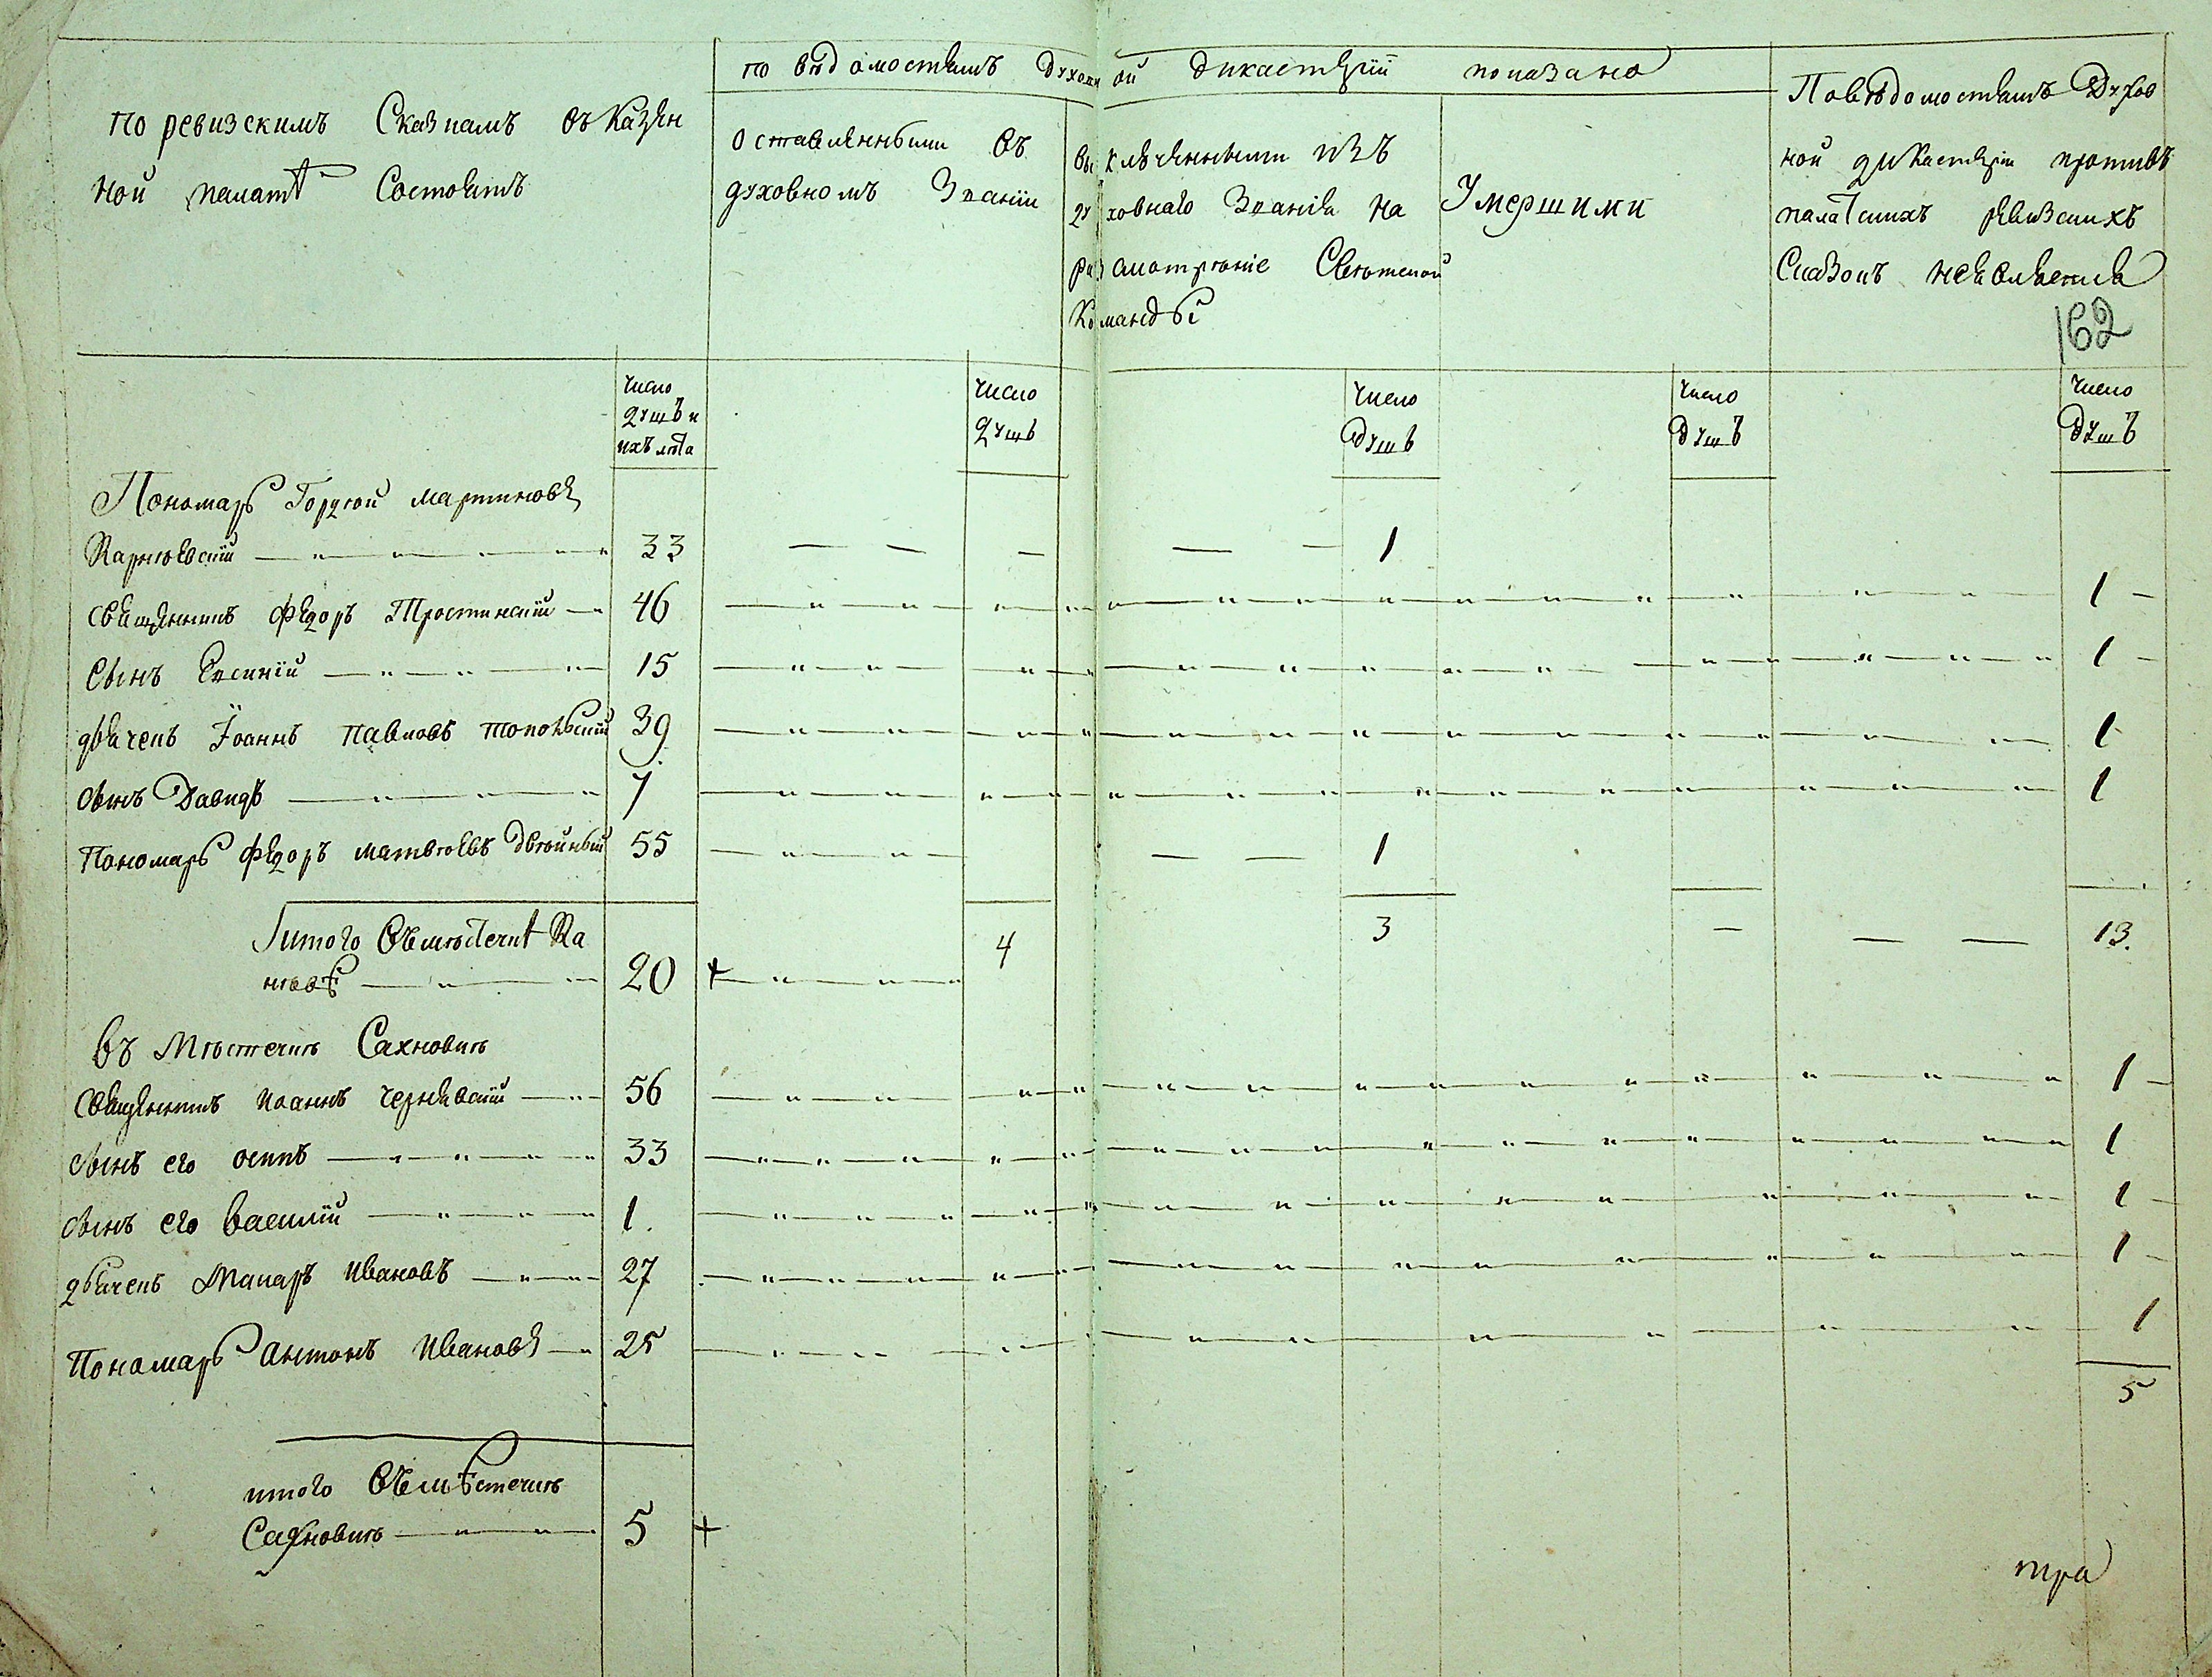 по ревизскимъ Сказкамъ въ Казен
ной палатѣ Состоитъ
по вѣдомостямъ Духовн ой дикастерїи показано
оставленными въ
духовномъ Званїи
вы ключенными изъ
ду ховнаго Званія на
раз смотрѣніе Свѣтской
Ко манды
Умершими
По вѣдомостямъ Духов
ной дикастеріи противъ
палатскихъ ревизскихъ
Сказокъ неявляется
162
число
душъ и
ихъ лѣта
число
душъ
число
душъ
число
душъ
число
душъ
Пономарь Гордѣй Мартиновъ
Карнѣевскїй 33 1
священникъ Федоръ Тростинскїй 46 1
Сынъ Евсинїй 15 1
дьячекъ Їоаннъ Павловъ 39 1
сынъ Давидъ 7 1
Пономарь Федоръ Матвѣевъ 55 1
Итого въ мѣстечкѣ Ка
нѣвѣ 20 + 4 3 13.
въ Мѣстечкѣ Сахновкѣ
священникъ Иоаннъ Чернявскїй 56 1
сынъ его осипъ 33 1
сынъ его василїй 1. 1
дьячекъ Макаръ Ивановъ 27 1
Пономарь антонъ Ивановъ 25 1
5
итого въ мѣстечкѣ
Сахновкѣ 5 +
тра